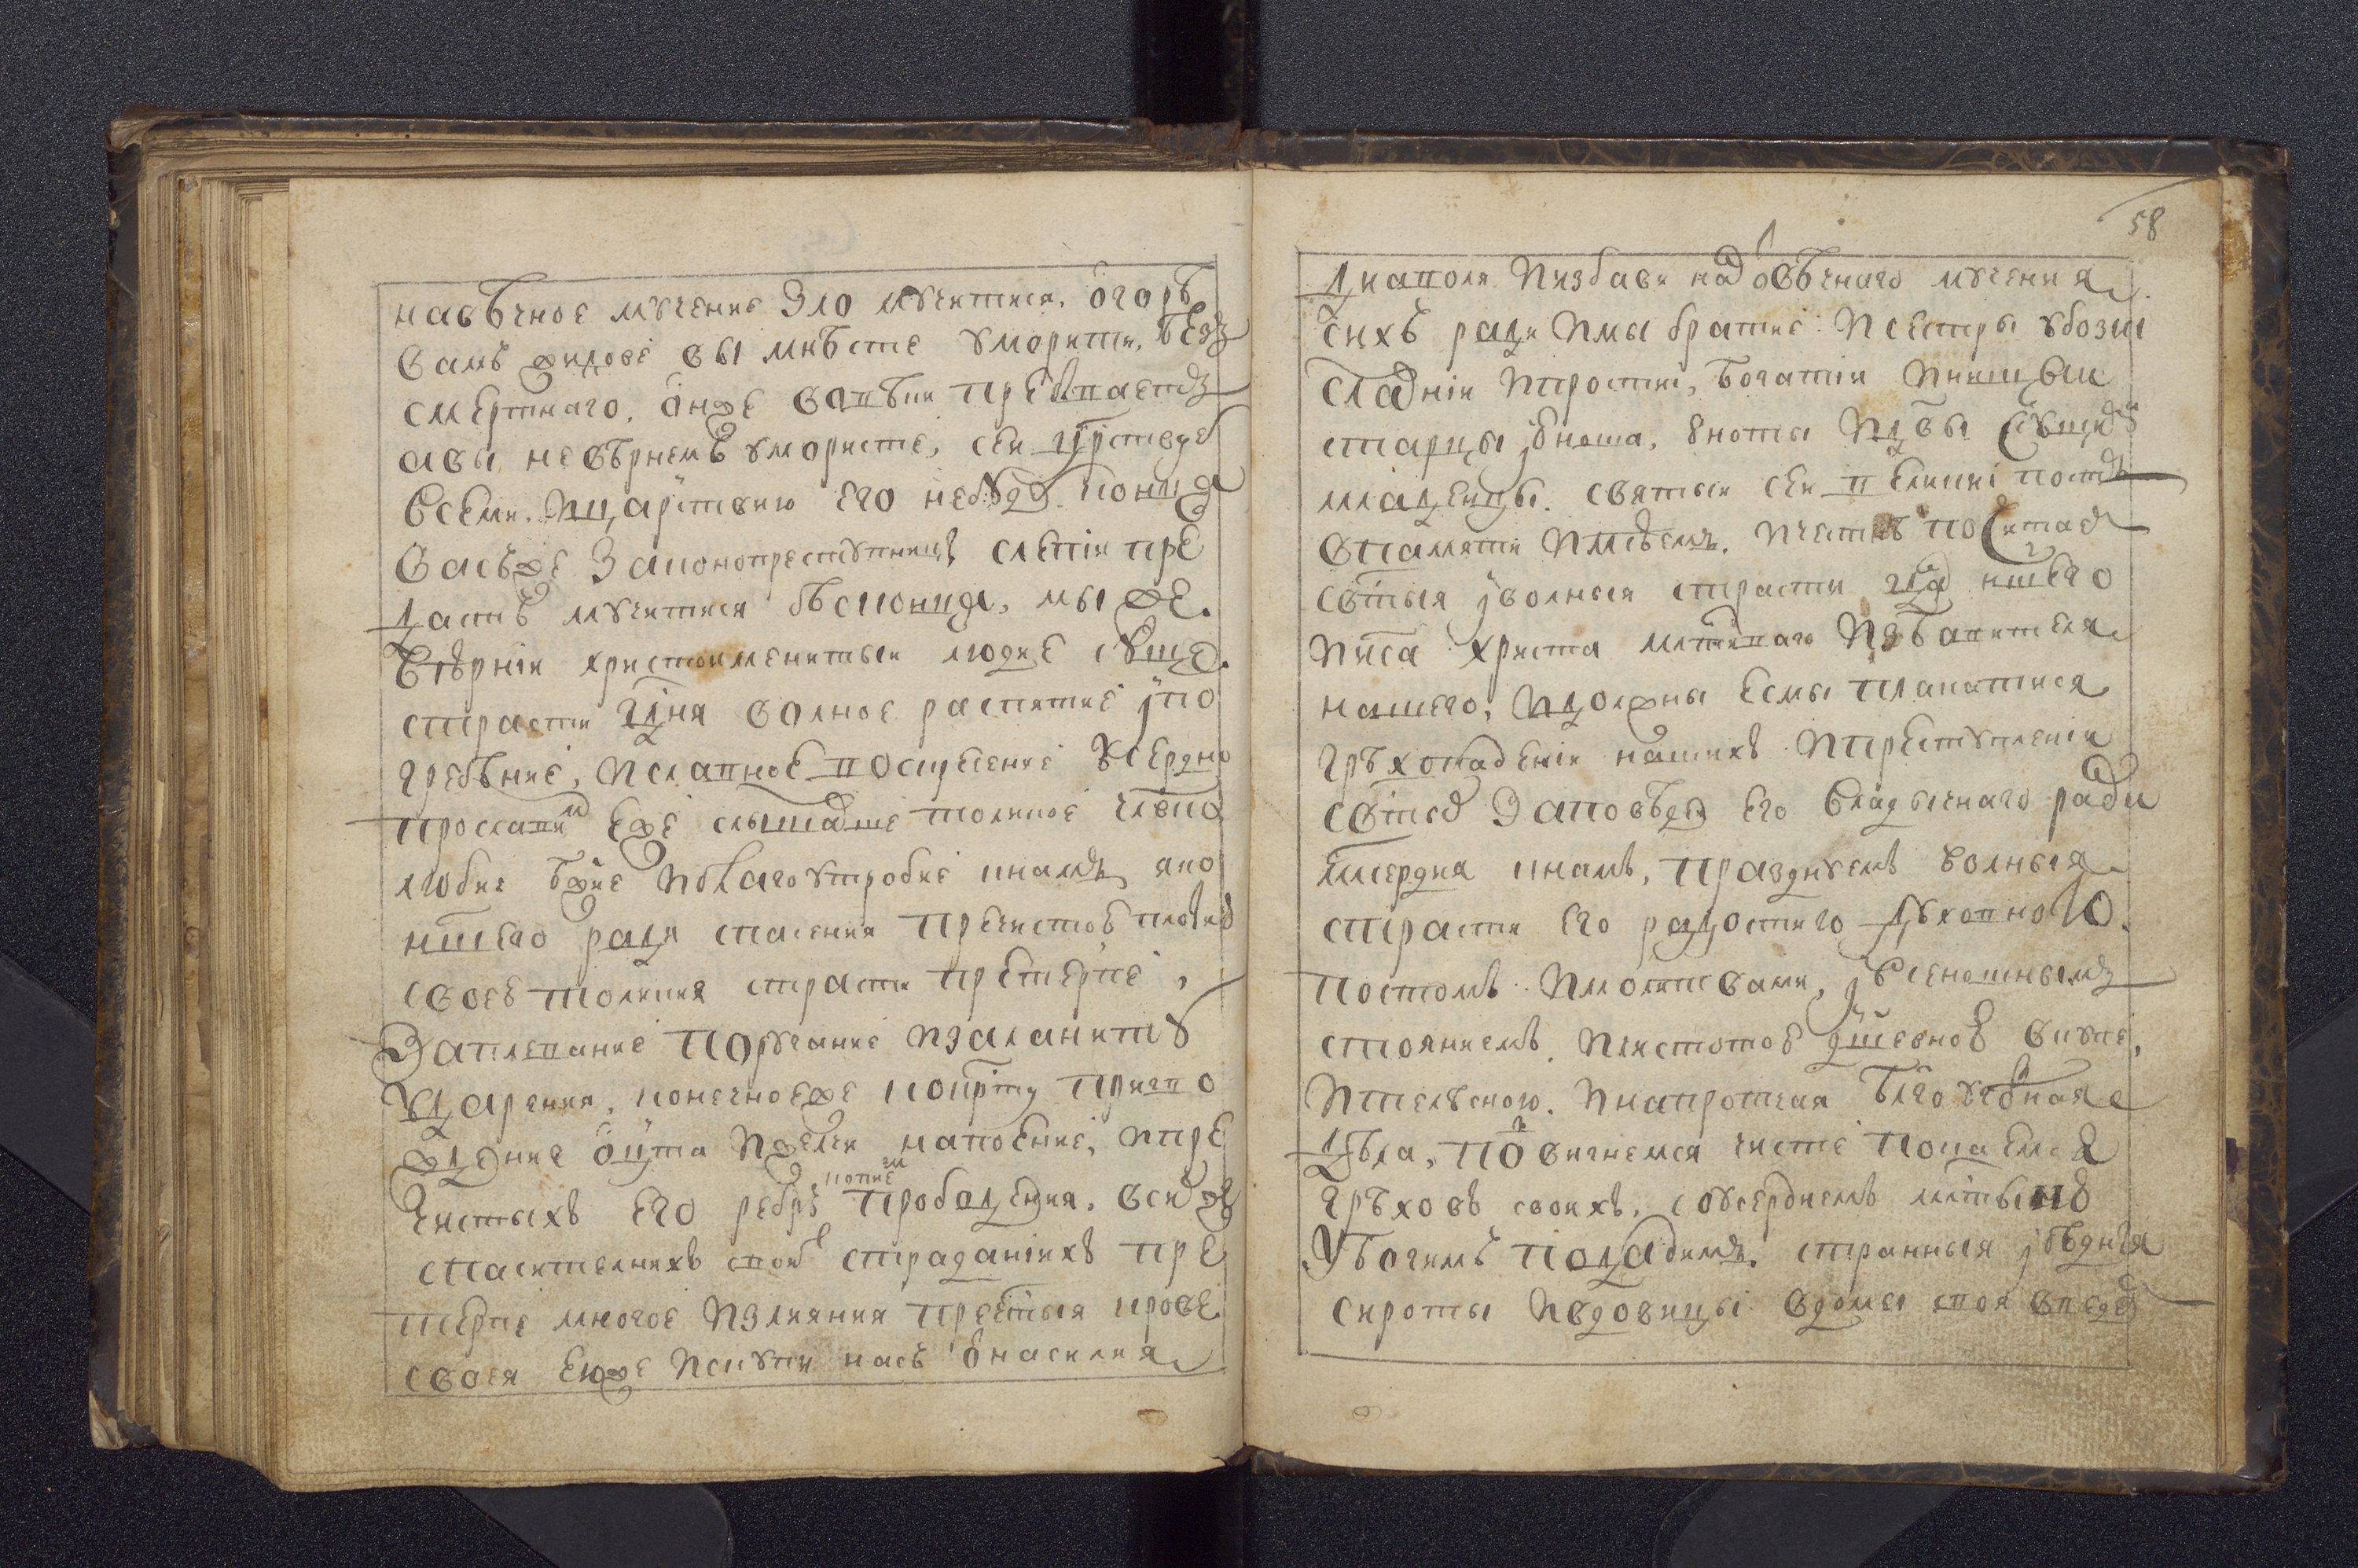 навѣчное мученіе зло мучитися. ѽгорѣ
вамъ жидове вы мнѣсте уморити, безъ
смертнаго. онже вовѣки пребываетъ
авы невѣриемъ умористе, сеи црствуетъ
всеми. ицарствию его небудетъ конца
васъже законопреступницъ слепіи пре
дастъ мучитися бѣсконца, мы же.
вѣрніи христоименитыи людие суще.
страсти гдня волное распятие ипо
гребѣние, иславное воскресение усердно
прославим еже слышавше толикое члвко
любие бжие иблагоутробие кнамъ, яко
ншего ради спасения пречистою плотию
своею толикия страсти претерпе,
заплевание поругание изаланиту
ударения, конечноеже кокрту пригво
ждение оцта ижелчи напоение, ипре
чистыхъ его ребръ копиемъ прободения. всихже
спасителныхъ своих страданіихъ пре
терпе многое излияния пречтыя крове
своея еюже искупи насъ ѿнасилия
58
диаволя иизбави нас ѿвѣчнаго мучения
сихъ ради имы братие исестры убозии
славніи ипростиі, богатіи инищіи
старцы июноша, юноты идвы исущия
младенцы. святыи сеи великиі постъ
впамяти имѣемъ. ичестнѣ почитаем
свтыя иволныя страсти гда ншего
ииса христа млтиваго избавителя
нашего, идолжны есмы плакатися
грѣхопадении нашихъ ипреступлении
свтых заповѣдей его владычнаго ради
млсердия кнамъ, празднуемъ волныя
страсти его радостию духовною.
постомъ имолитвами, ивсенощнымъ
стояниемъ. ичистотою дшевною вкупе,
ителѣсною. инапротчая блгоугодная
дѣла, подвигнемся чисте покаемся
грѣховъ своихъ, соусердиемъ млтыню
убогимъ подадимъ. странныя ибѣдныя
сироты ивдовицы вдомы своя введем